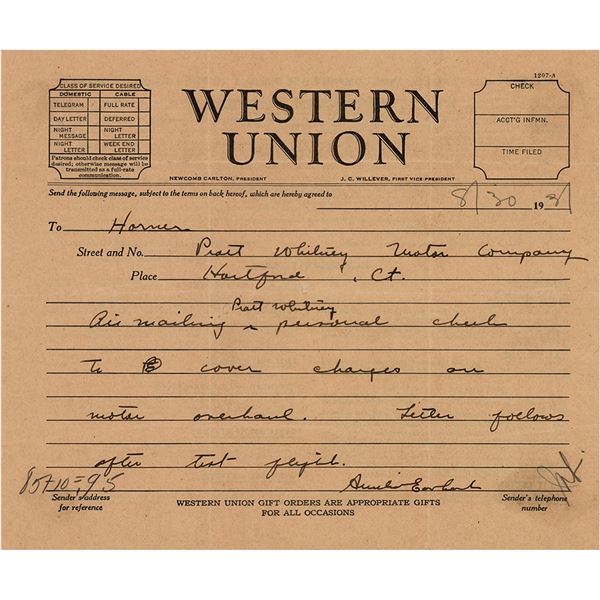 1207-A
CLASS OF SERVICE DESIRED
DOMESTIC CABLE
TELEGRAM FULL RATE
DAY LETTER DEFERRED
NIGHT MESSAGE NIGHT LETTER
NIGHT LETTER WEEK END LETTER
Patrons should check class of service
desired; otherwise message will be
transmitted as a full-rate
communication.
WESTERN
UNION
NEWCOMB CARLTON, PRESIDENT J. C. WILLEVER, FIRST VICE-PRESIDENT
CHECK
ACCT'G INFMN.
TIME FILED
Send the following message, subject to the terms on back hereof, which are hereby agreed to
8/30 1931
To Horner
Street and No. Pratt Whitney Motor Company
Place Hartford, Ct.
Pratt Whitney
Air mailing ^ personal check
to cover charges on
motor overhaul. Letter follows
after test flight.
85+10=95
Amelia Earhart
Sender's address
for reference
WESTERN UNION GIFT ORDERS ARE APPROPRIATE GIFTS
FOR ALL OCCASIONS
Sender's telephone
number